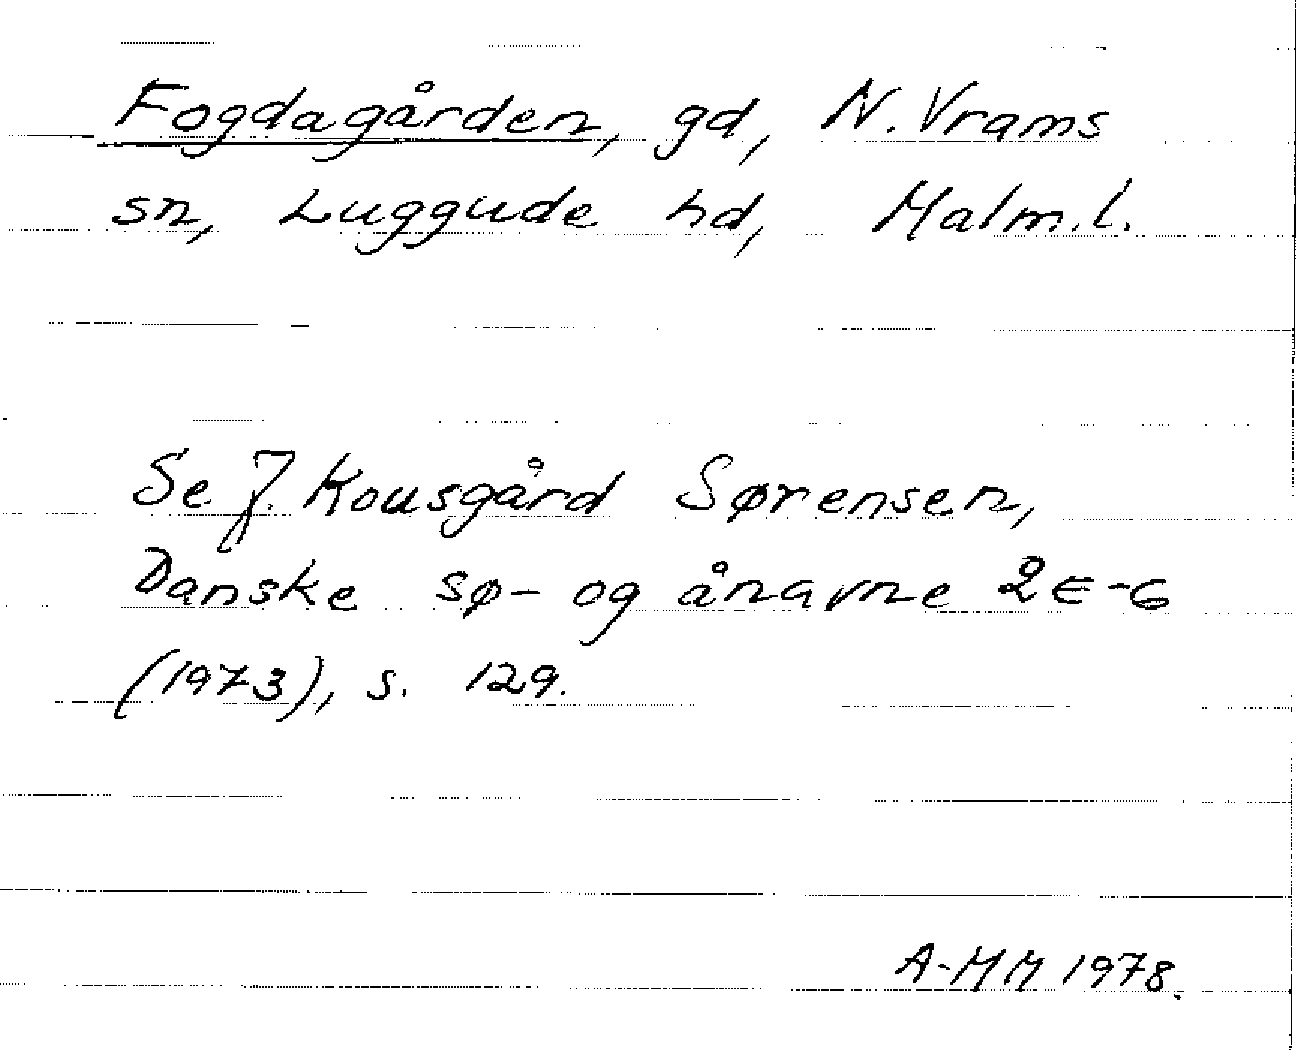 Fogdagården, gd, N. Vrams
sn, Luggude hd, Malm.l.
Se J. Kousgård Sørensen,
Danske sø- og ånavne 2 E-G
(1973), s. 129.
A-MM 1978.